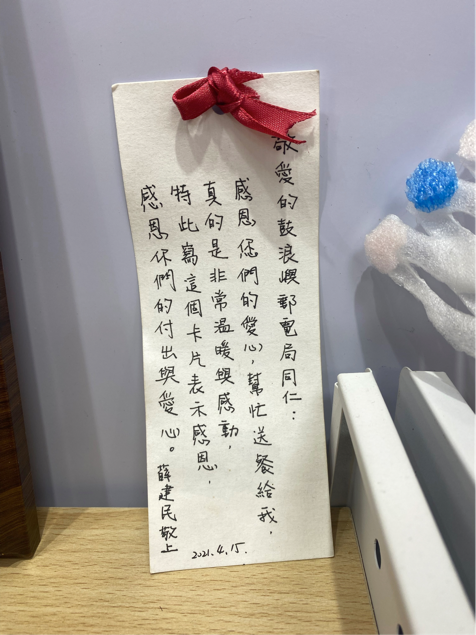 敬愛的鼓浪嶼郵電局同仁：
感恩您們的愛心，幫忙送餐給我，
真的是非常溫暖與感動，
特此寫這個卡片表示感恩，
感恩你們的付出與愛心。薛建民敬上
2021.4.15.